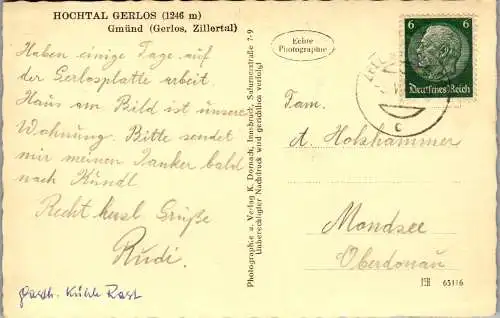 HOCHTAL GERLOS (1246 m)
Gmünd (Gerlos, Zillertal)
Haben einige Tage auf
der Gerlosplatte arbeit.
Haus am Bild ist unsere
Wohnung. Bitte sendet
mir meinen Janker bald
nach Kündl.
Recht herzl. Grüße
Rudi.
Gasth. Kühle Rast
Photographie u. Verlag K. Dornach, Innsbruck, Salurnerstraße 7-9
Unberechtigter Nachdruck wird gerichtlich verfolgt
Echte
Photographie
6 6
Deutsches Reich
ZELL
c
Fam.
A. Holzhammer
Mondsee
Oberdonau
65116